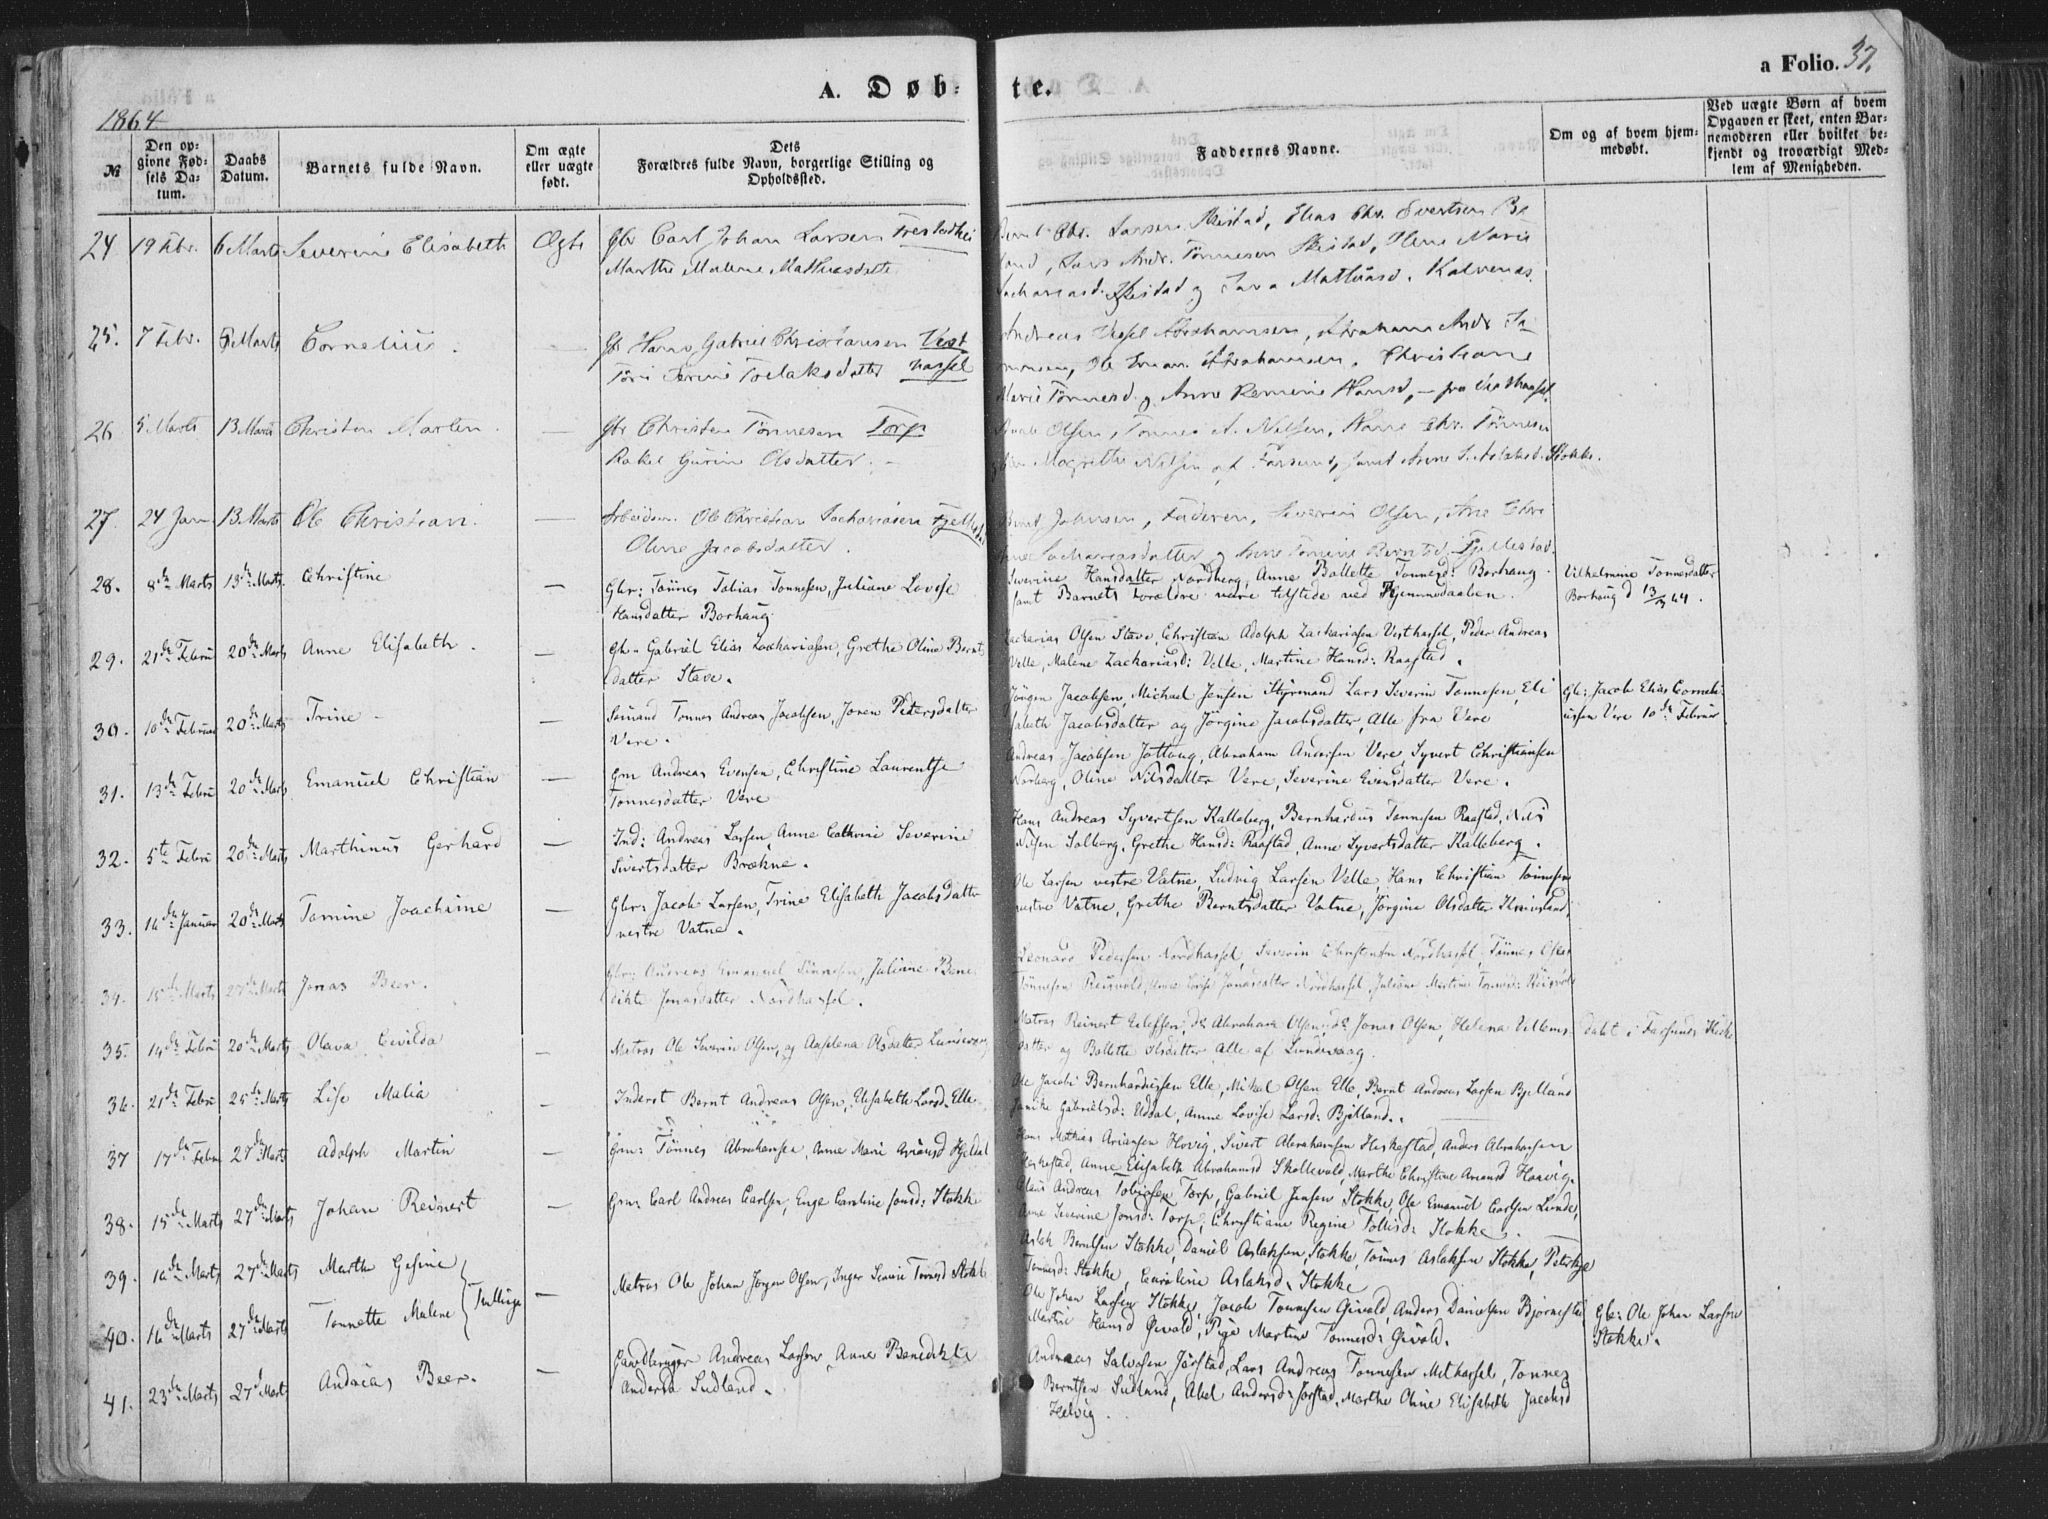 A. Døb-te.
a Folio. 37.
1864
№
Den opgivne Fødsels Datum.
Daabs Datum.
Barnets fulde Navn.
Om ægte eller uægte født.
Dets Forældres fulde Navn, borgerlige Stilling og Opholdssted.
Faddernes Navne.
Om og af hvem hjemmedøbt.
Ved uægte Børn af hvem Opgaven er skeet, enten Barnemoderen eller hvilket bekjendt og troværdigt Medlem af Menigheden.
24 19 Febr. 6 Marts Severine Elisabeth Ægte Gbr Carl Johan Larsen
Marthe Malene Mathiasdatter
Chr. Larsen Skistad, Elias Chr. Evertsen
Lars Andr. Tønnesen Skistad, Oline Marie
Skistad og Sara Mathiasd. Kalvenas
25. 7 Febr. 6 Marts Cornelius. — Gbr Hans Gabriel Christiansen Vest
Serine Torlaksdatter hassel
Andreas Abrahamsen, Abraham Andr.
Ole Eman. Abrahamsen, Christiane
Marie Tønnesd. og Anne Hansd, – fra Vesthassel.
26 5 Marts 13 Marts Christen Marten. — Gbr Christen Tønnesen Torp
Rakel Gurine Olsdatter. –
Olsen, Tønnes A. Nilsen, Hans Chr. Tønnesen
Magrethe Nilsen af Farsund, samt Anne S. Aslaksd. Stokke.
27. 24 Jan 13 Marts Ole Christian. — Arbeidsm. Ole Christian Sachariasen
Oline Jacobsdatter.
Bernt Johnsen, Faderen, Severin Olsen, Ane
Sachariasdatter og Anne Tomine Berntsd. Fjellestad.
28. 8de Marts 13de Marts. Christine — Gbr: Tönnes Tobias Tonnesen, Juliane Lovise
Hansdatter Borhaug.
Severine Hansdatter Nordberg, Anne Bollette Tonnesd: Borhaug.
samt Barnets Forældre vare tilstede ved Hjemmedaaben.
Vilhelmine Tonnesdatter
Borhaug d 13/3 64.
29. 21de Febru 20de Marts Anne Elisabeth. — Gb- Gabriel Elias Zachariasen, Grethe Oline Bernts
datter Stave.
Zacharias Olsen Stave, Christian Adolph Zachariasen Vesthassel, Peder Andreas
Velle, Malene Zachariasd: Velle, Martine Hansd: Raastad.
30. 10de Februar 20de Marts Trine — Sømand Tonnes Andreas Jacobsen, Joren Pedersdatter
Vere.
Jörgen Jacobsen, Michael Jensen Styrmand Lars Severin Tonnesen, Eli
sabeth Jacobsdatter og Jörgine Jacobsdatter, Alle fra Vere
Gb: Jacob Elias Corneli
usen Vere 10de Februar
31. 13de Febru 20de Marts Emanuel Christian — Grm Andreas Evensen, Christine Laurentse
Tonnesdatter Vere
Andreas Jacobsen Jottoug, Abraham Andersen Vere, Syvert Christiansen
Norberg, Oline Nilsdatter Vere, Severine Evensdatter Vere.
32. 5te Febru 20de Marts Marthinus Gerhard — Ind: Andreas Larsen, Anne Cathrine Severine
Sivertsdatter Brækne.
Hans Andreas Syvertsen Kalleberg, Bernhardus Tonnesen Raastad, Nils
Nilsen Solberg, Grethe Hansd: Raastad, Anne Syvertsdatter Kalleberg.
33. 14de Januar 20de Marts Tomine Joachime — Gbr: Jacob Larsen, Trine Elisabeth Jacobsdatter
vestre Vatne.
Ole Larsen vestre Vatne, Ludvig Larsen Velle, Hans Christian Tonnesen
vestre Vatne, Grethe Berntsdatter Vatne, Jörgine Olsdatter
34. 15de Marts 27de Marts Jonas Beer. Gbr: Andreas Emanuel Tönnesen, Juliane Bene
dikte Jonasdatter Nordhassel.
Leonard Pedersen Nordhassel, Severin Christensen Nordhassel, Tönnes
Tönnesen Jonasdatter Nordhassel, Juliane Martine Tonnesd:
35. 14de Febru 20de Marts Olava Cevilda — Matros Ole Severin Olsen, og Anselena Olsdatter Lundevaag
Matros Reinert Eeleffsen, do Abraham Olsen, do Jonas Olsen, Helena Villems
datter og Bollette Olsdatter, Alle af Lundevaag.
døbt i Farsunds Kirke
36. 21de Febru 25de Marts Lise Malia — Inderst Bernt Andreas Olsen, Elisabeth Larsd. Elle
Ole Jacob Bernhardussen Elle, Mikal Olsen Elle, Bernt Andreas Larsen Bjelland
Janike Gabrielsd: Uddal, Anne Lovise Larsd: Bjelland.
37 17de Febru 27de Marts Adolph Martin — Grm: Tönnes Abrahamsen, Anne Marie Arionsd
Hans Mathias Ariansen Hovig, Sivert Abrahamsen Heskestad, Anders Abrahamsen
Heskestad, Anne Elisabeth Abrahamsd Skollevold, Marthe Christine Arionsd Haavig.
38. 15de Marts 27de Marts Johan Reinert — Grm: Carl Andreas Carlsen, Enge Caroline Jonsd: Stokke
Claus Andreas Tobiasen Torp, Gabriel Jensen Stokke, Ole Emanuel Carlsen Lunde,
Anne Severine Jonsd: Torp, Christiane Regine Tobiasd: Stokke.
39. 16de Marts 27de Marts Marthe Gesine — Matros Ole Johan Jørgen Olsen, Inger Tonnesd Stokke
Aslak Berntsen Stokke, Daniel Aslaksen Stokke, Tonnes Aslaksen Stokke,
Tonnesd: Stokke, Caroline Aslaksd: Stokke
40. 16de Marts 27de Marts Tonnette Malene Tvillinge
Ole Johan Larsen Stokke, Jacob Tonnesen Givold, Anders Danielsen Bjørnestad
Martine Hansd Givold, Pige Martine Tonnesd: Givold.
Gb: Ole Johan Larsen
Stokke.
41. 23de Marts 27de Marts Andreas Beer. — Gaardbruger Andreas Larsen, Anne Benedikte
Andersd: Sudland.
Andreas Salvesen Jörstad, Lars Andreas Tonnesen Midhassel, Tonnes
Berntsen Sudland, Abel Andersd: Jorstad, Marthe Oline Elisabeth Jacobsd
Helvig.